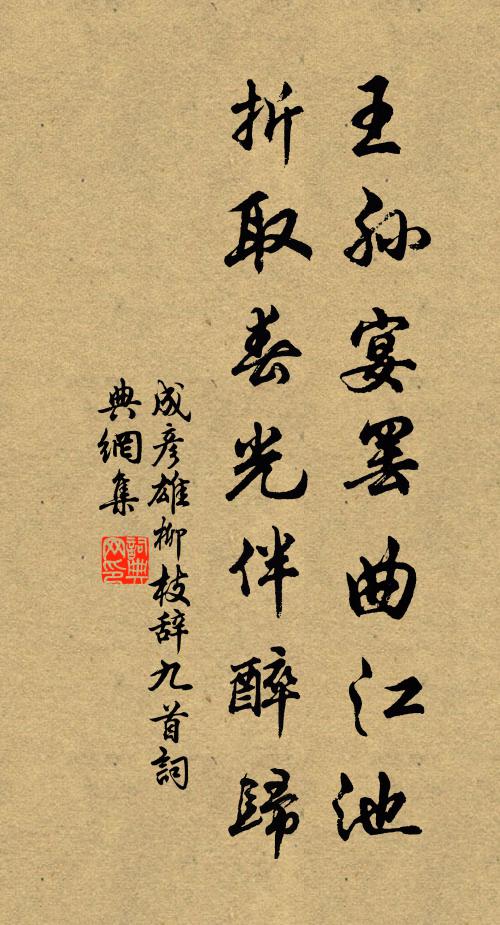 王孙宴罢曲江池
折取春光伴醉歸
成彦雄柳枝辞九首詞
典網集
詞典
网印